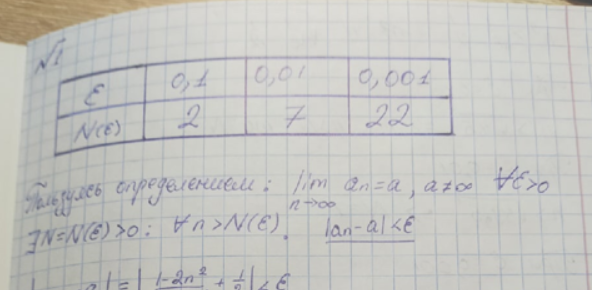 №1
ε 0,1 0,01 0,001
N(ε) 2 7 22
Пользуясь определением: lim an=a, a≠∞ ∀ε>0
n→∞
∃N=N(ε)>0: ∀n>N(ε). |an-a|<ε
|=| 1-2n² + 1/2 |<ε